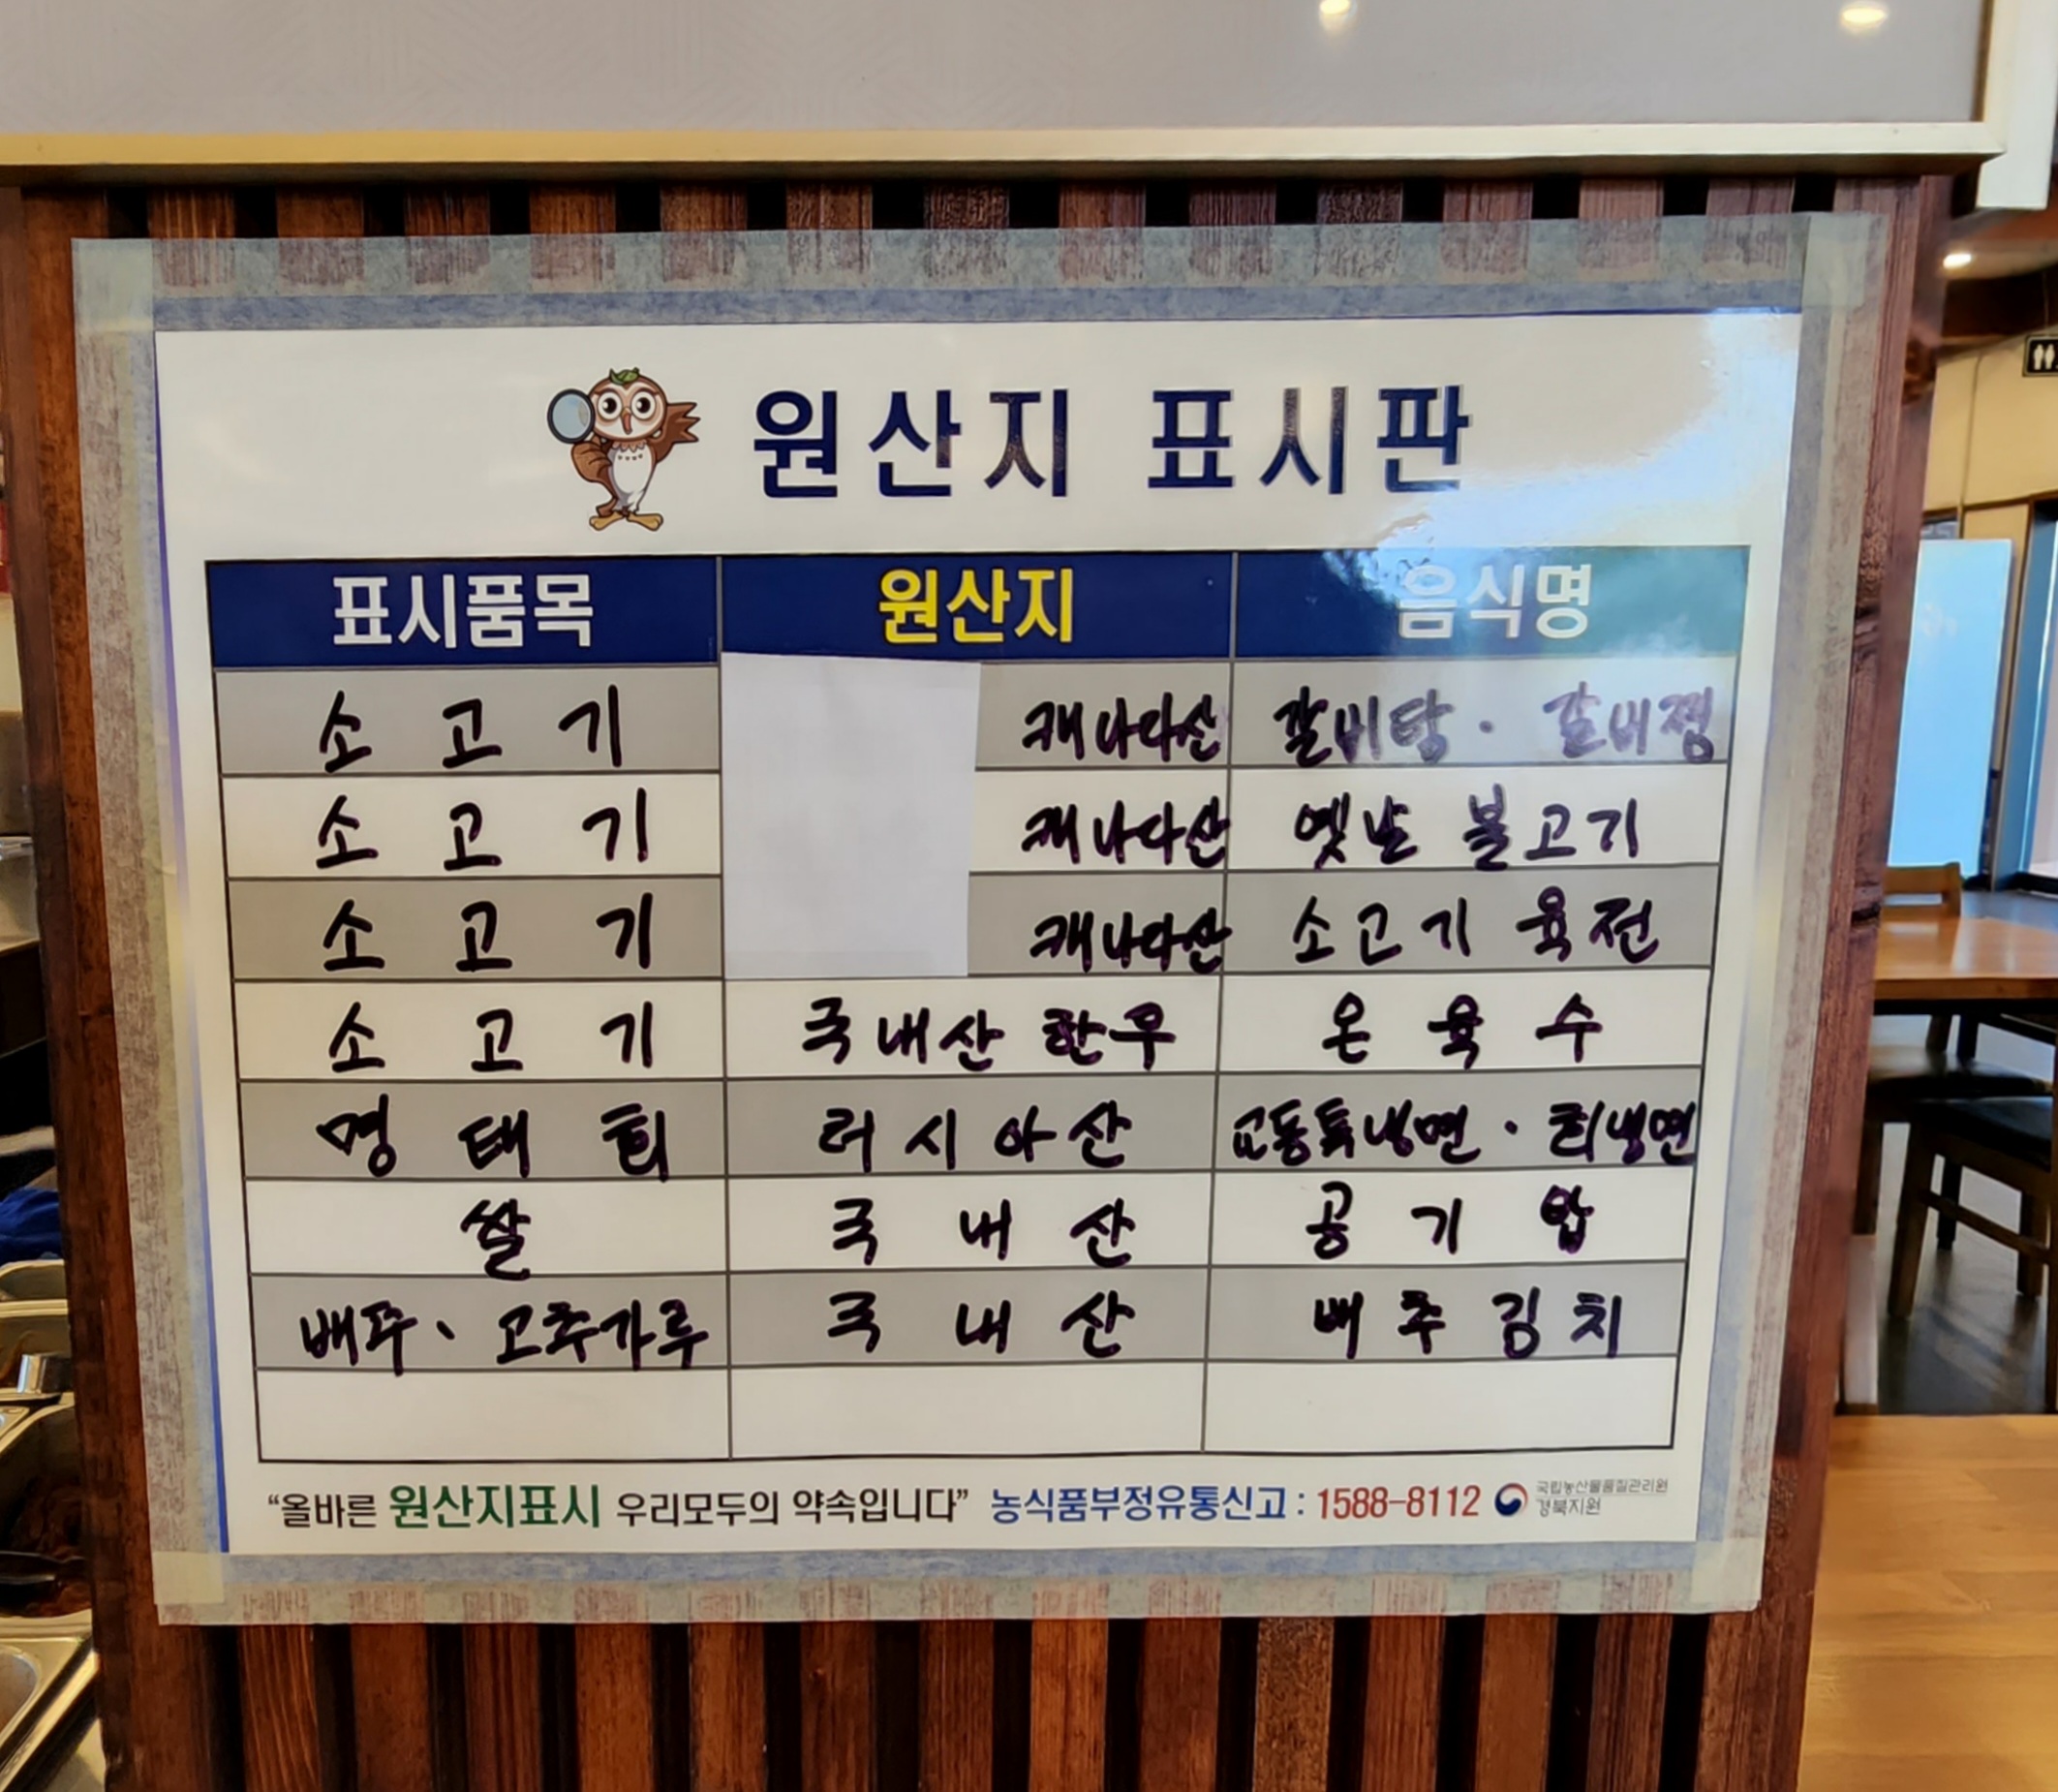 원산지 표시판
표시품목 원산지 음식명
소고기 캐나다산 갈비탕 · 갈비찜
소고기 캐나다산 옛날 불고기
소고기 캐나다산 소고기 육전
소고기 국내산 한우 온육수
명태회 러시아산 교동특냉면 · 회냉면
쌀 국내산 공기밥
배추、고추가루 국내산 배추김치
“올바른 원산지표시 우리모두의 약속입니다” 농식품부정유통신고 : 1588-8112 국립농산물품질관리원
경북지원